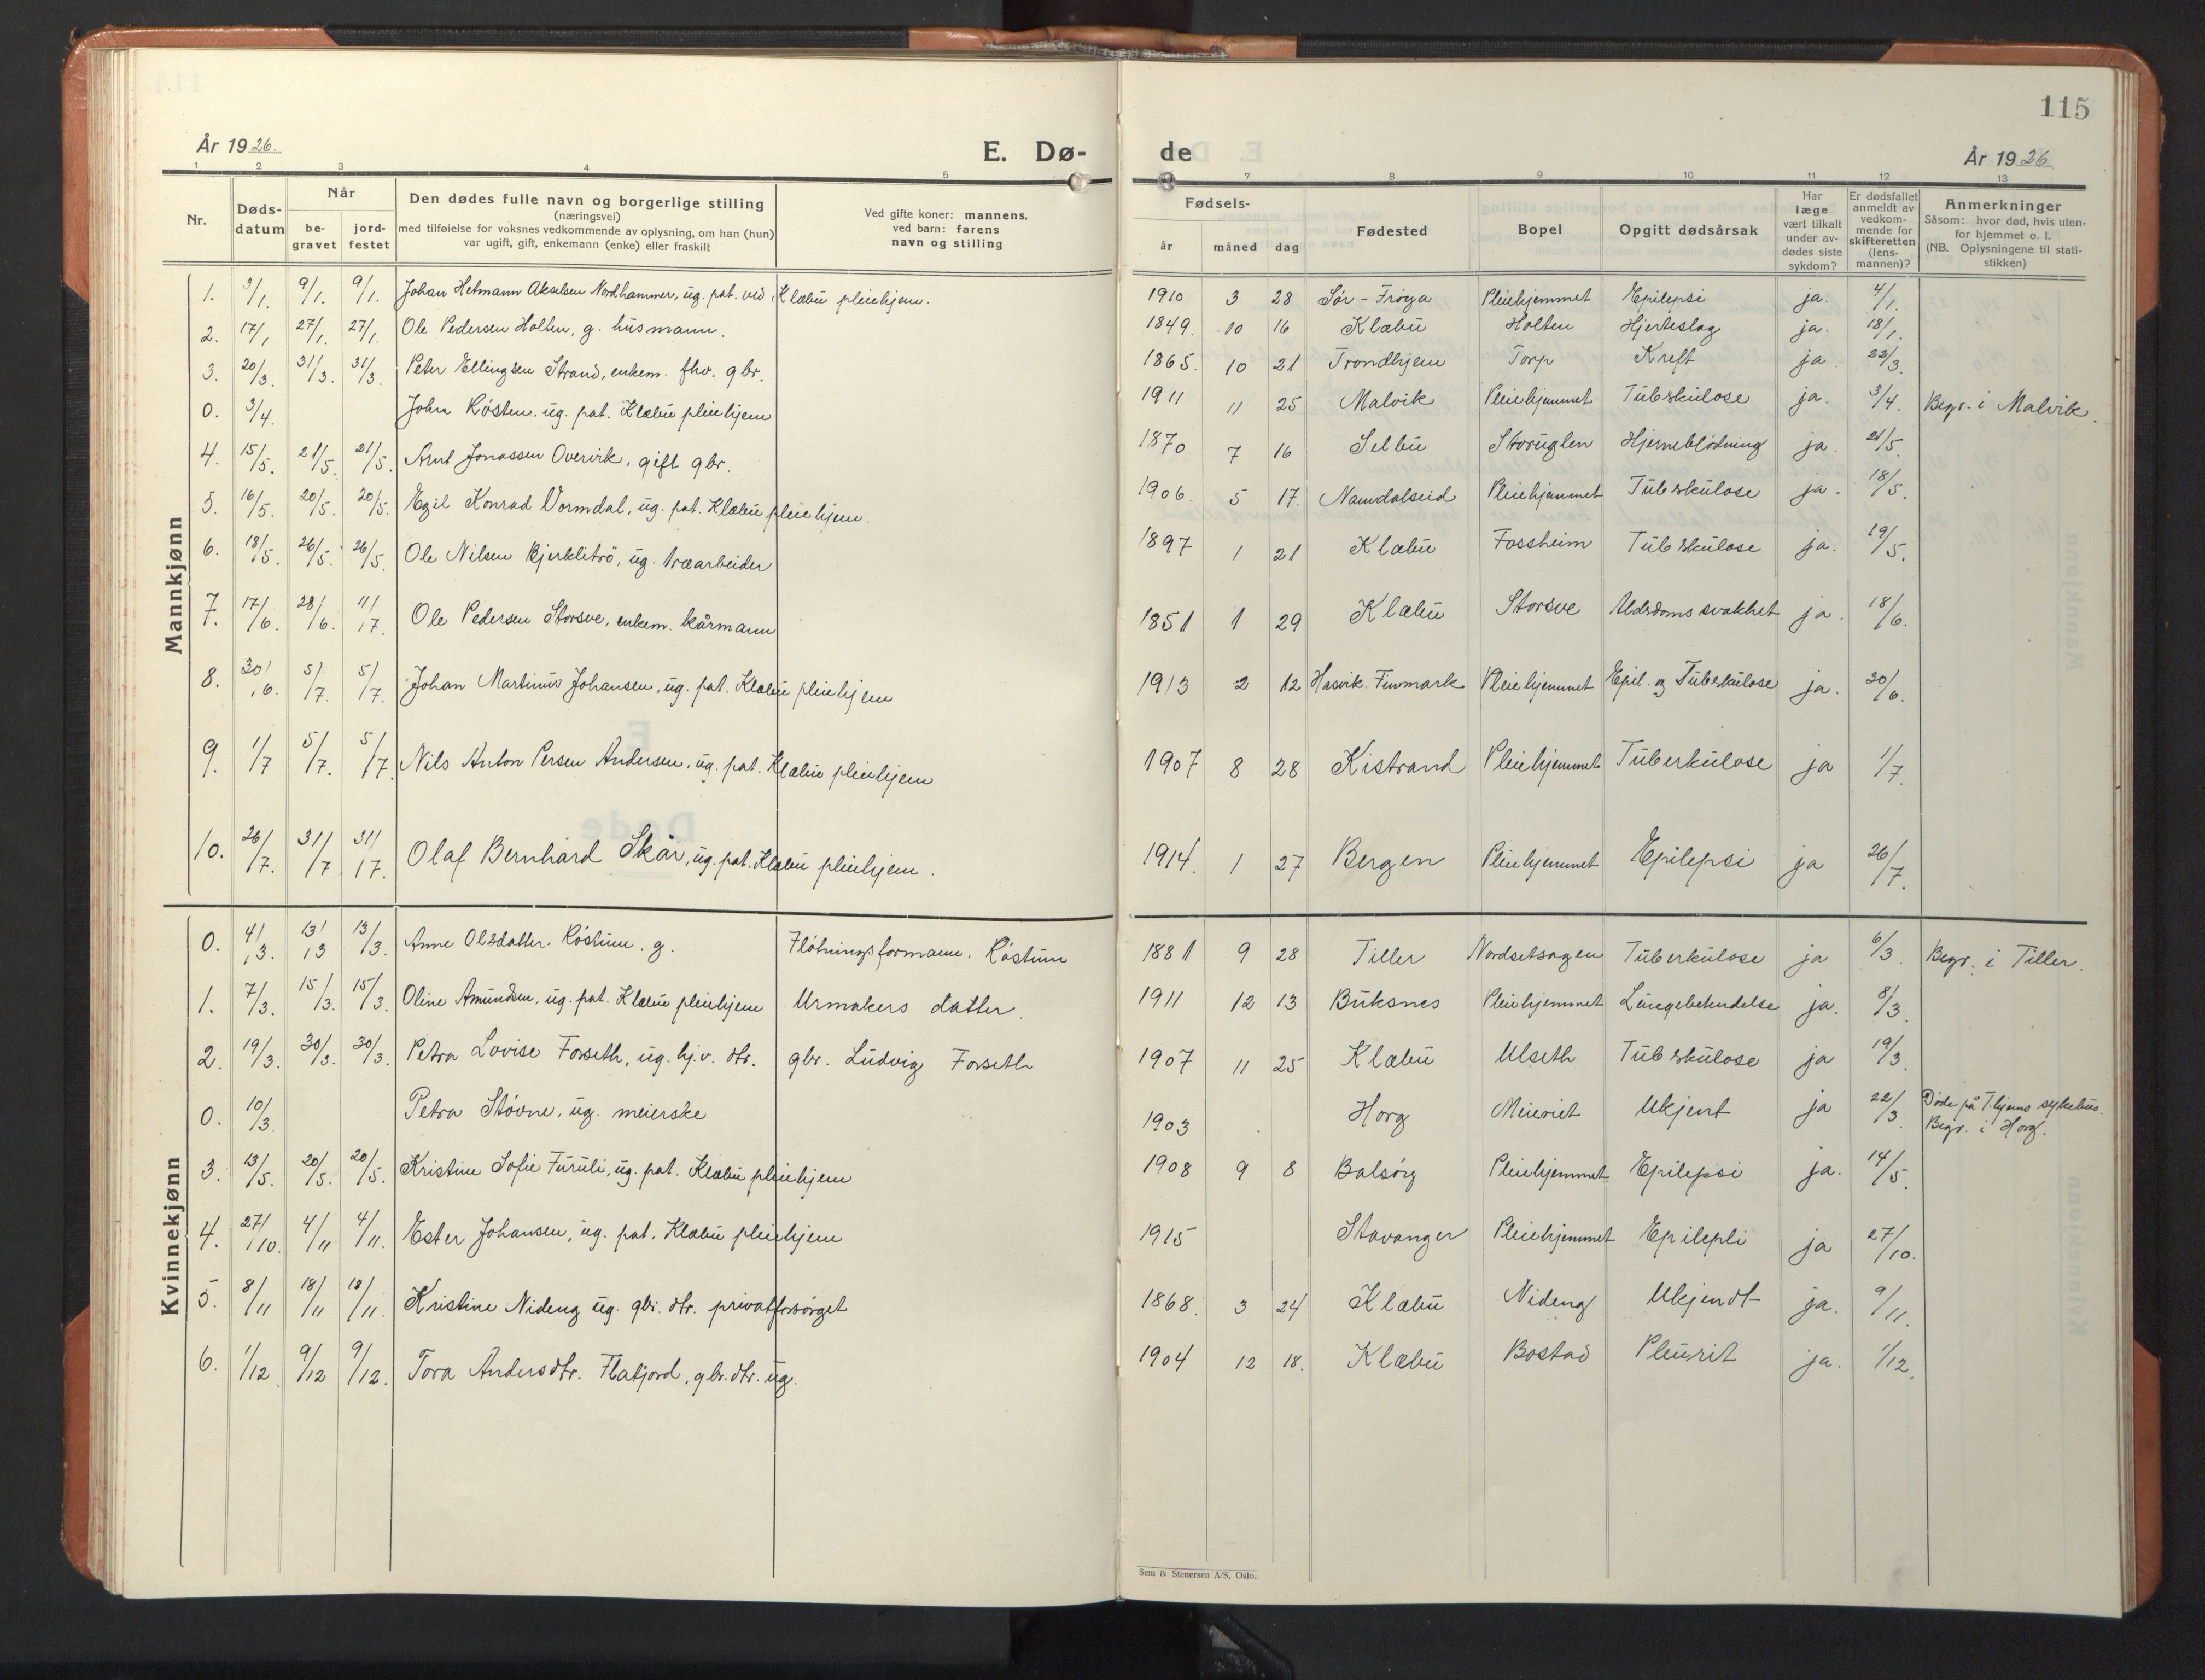 115
År 1926.
E. Dø-
de
År 1926
1 2 3 4 5
7 8 9 10 11 12 13
Nr.
Døds-
datum
Når
be-
gravet
jord-
festet
Den dødes fulle navn og borgerlige stilling
(næringsvei)
med tilføielse for voksnes vedkommende av oplysning, om han (hun)
var ugift, gift, enkemann (enke) eller fraskilt
Ved gifte koner: mannens,
ved barn: farens
navn og stilling
Fødsels-
år
måned
dag
Fødested
Bopel
Opgitt dødsårsak
Har
læge
vært tilkalt
under av-
dødes siste
sykdom?
Er dødsfallet
anmeldt av
vedkom-
mende for
skifteretten
(lens-
mannen)?
Anmerkninger
Såsom: hvor død, hvis uten-
for hjemmet o. l.
(NB. Oplysningene til stati-
stikken)
Mannkjønn
1. 3/1. 9/1. 9/1. Johan Hetmann Akselsen Nordhammer, ug. pat. ved Klæbu pleiehjem. 1910 3 28 Sør-Frøya Pleiehjemmet Epilepsi ja. 4/1.
2. 17/1 27/1. 27/1. Ole Pedersen Holten, g. husmann. 1849. 10 16 Klæbu Holten Hjerteslag ja. 18/1.
3. 20/3. 31/3. 31/3. Peter Ellingsen Strand, enkem. fhv. gbr. 1865. 10 21 Trondhjem Torp Kreft ja. 22/3.
0. 3/4. John Røsten, ug. pat. Klæbu pleiehjem 1911 11 25 Malvik Pleiehjemmet Tuberkulose ja. 3/4. Begr. i Malvik.
4. 15/5. 21/5. 21/5. Arnt Jonassen Overvik, gift gbr. 1870 7 16 Selbu Storuglen Hjerneblødning ja. 21/5.
5. 16/5. 20/5. 20/5. Egil Konrad Vormdal, ug. pat. Klæbu pleiehjem. 1906. 5 17. Namdalseid Pleiehjemmet Tuberkulose ja. 18/5.
6. 18/5. 26/5. 26/5. Ole Nilsen Bjerklitrø, ug. træarbeider 1897 1 21 Klæbu Fossheim Tuberkulose ja. 19/5.
7. 17/6. 28/6. 11/7. Ole Pedersen Storsve, enkem. kårmann 1851 1 29 Klæbu Storsve Alderdomssvakhet ja. 18/6.
8. 30/6. 5/7. 5/7. Johan Martinus Johansen, ug. pat. Klæbu pleiehjem 1913 2 12 Hasvik. Finmark Pleiehjemmet Epil. og Tuberkulose ja. 30/6.
9. 1/7 5/7. 5/7. Nils Anton Persen Andersen, ug. pat. Klæbu pleiehjem 1907 8 28 Kistrand Pleiehjemmet Tuberkulose ja 1/7.
10. 26/7. 31/7 31/7. Olaf Bernhard Skår, ug. pat. Klæbu pleiehjem. 1914. 1 27 Bergen Pleiehjemmet Epilepsi ja 26/7.
Kvinnekjønn
0. 4/3. 13/3 13/3. Anne Olsdatter Røstum. g. Fløtningsformann. Røstum 1881 9 28 Tiller Nordsetsagen Tuberkulose ja 6/3. Begr. i Tiller.
1. 7/3. 15/3. 15/3. Oline Amundsen, ug. pat. Klæbu pleiehjem Urmakers datter. 1911 12 13 Buksnes Pleiehjemmet Lungebetendelse ja. 8/3.
2. 19/3. 30/3. 30/3. Petra Lovise Forseth, ug. hj.v. dtr. gbr. Ludvig Forseth 1907 11 25 Klæbu Ulseth Tuberkulose ja 19/3.
0. 10/3. Petra Støvne, ug. meierske 1903 Horg Meieriet Ukjent ja 22/3. Døde på T.hjems sykehus.
Begr. i Horg.
3. 13/5. 20/5. 20/5. Kristine Sofie Furuli, ug. pat. Klæbu pleiehjem 1908 9 8 Balsørg Pleiehjemmet Epilepsi ja. 14/5.
4. 27/10. 4/11 4/11. Ester Johansen, ug. pat. Klæbu pleiehjem 1915 Stavanger Pleiehjemmet Epilepli ja 27/10.
5. 8/11 18/11 18/11. Kristine Nideng ug. gbr. dtr. privatforsørget 1868. 3 24 Klæbu Nideng Ukjendt ja. 9/11.
6. 1/12 9/12 9/12. Tora Andersdtr. Flatjord, gbr. dtr. ug. 1904 12 18. Klæbu Bostad Pleurit ja. 1/12.
Sem & Stenersen A/S, Oslo.